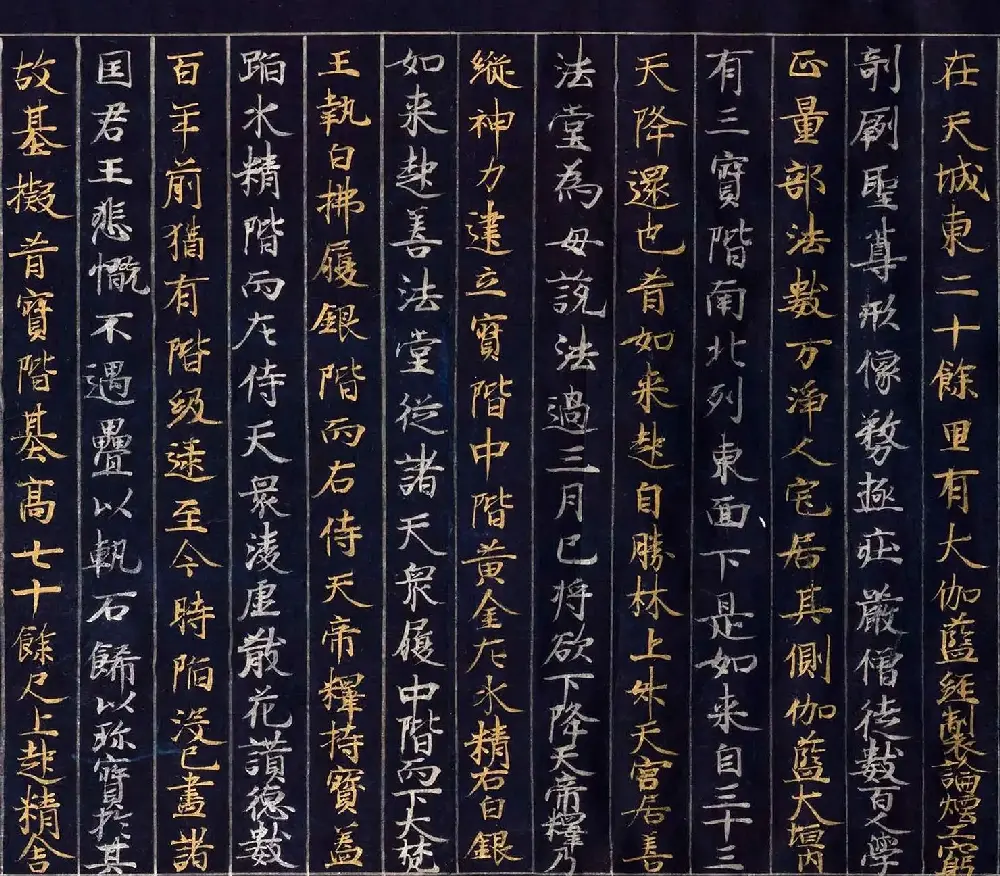 在天城東二十餘里有大伽藍經製論工窮
剞劂聖尊形像務極莊嚴僧徒數百人學
正量部法數万淨人宅居其側伽藍大垣内
有三寶階南北列東面下是如来自三十三
天降還也昔如来起自勝林上升天宮居善
法堂為母説法過三月已将欲下降天帝釋乃
縱神力建立寶階中階黄金左水精右白銀
如来起善法堂従諸天衆履中階而下大梵
王執白拂履銀階而右侍天帝釋持寶蓋
蹈水精階而左侍天衆淩虚散花讃德數
百年前猶有階級逮至今時陷没已盡諸
国君王悲慨不遇疊以軏石餝以珎寶於其
故基擬昔寶階基高七十餘尺上起精舎